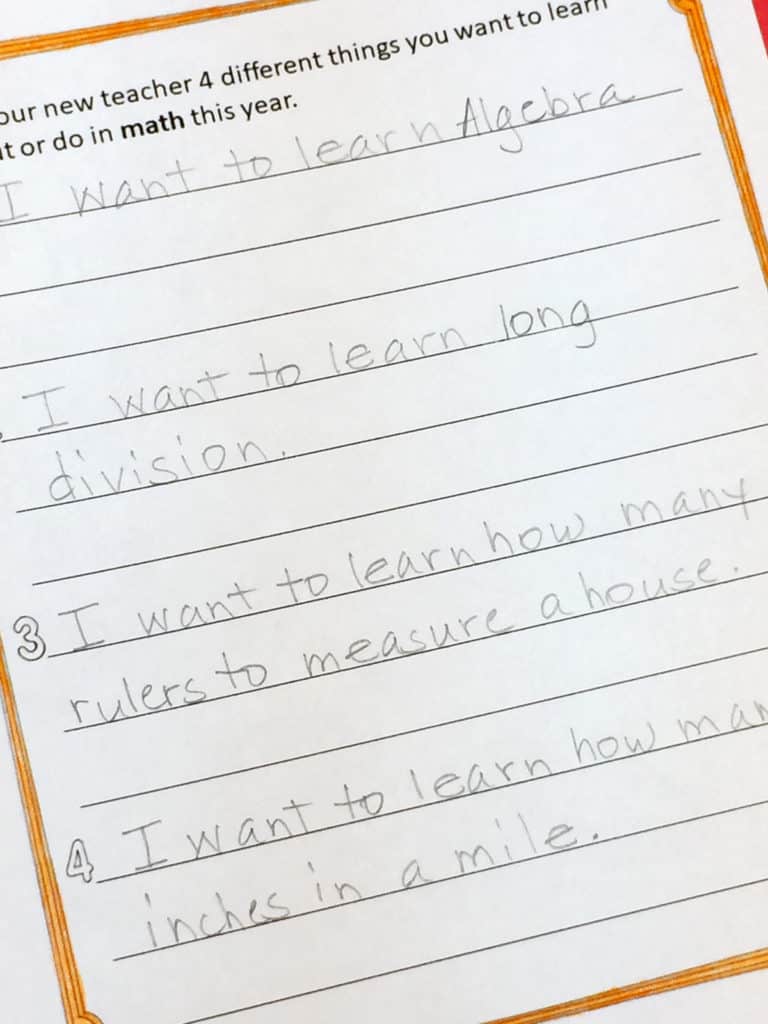 our new teacher 4 different things you want to learn
or do in math this year.
I want to learn Algebra
I want to learn long
division.
3 I want to learn how many
rulers to measure a house.
4 I want to learn how
inches in a mile.